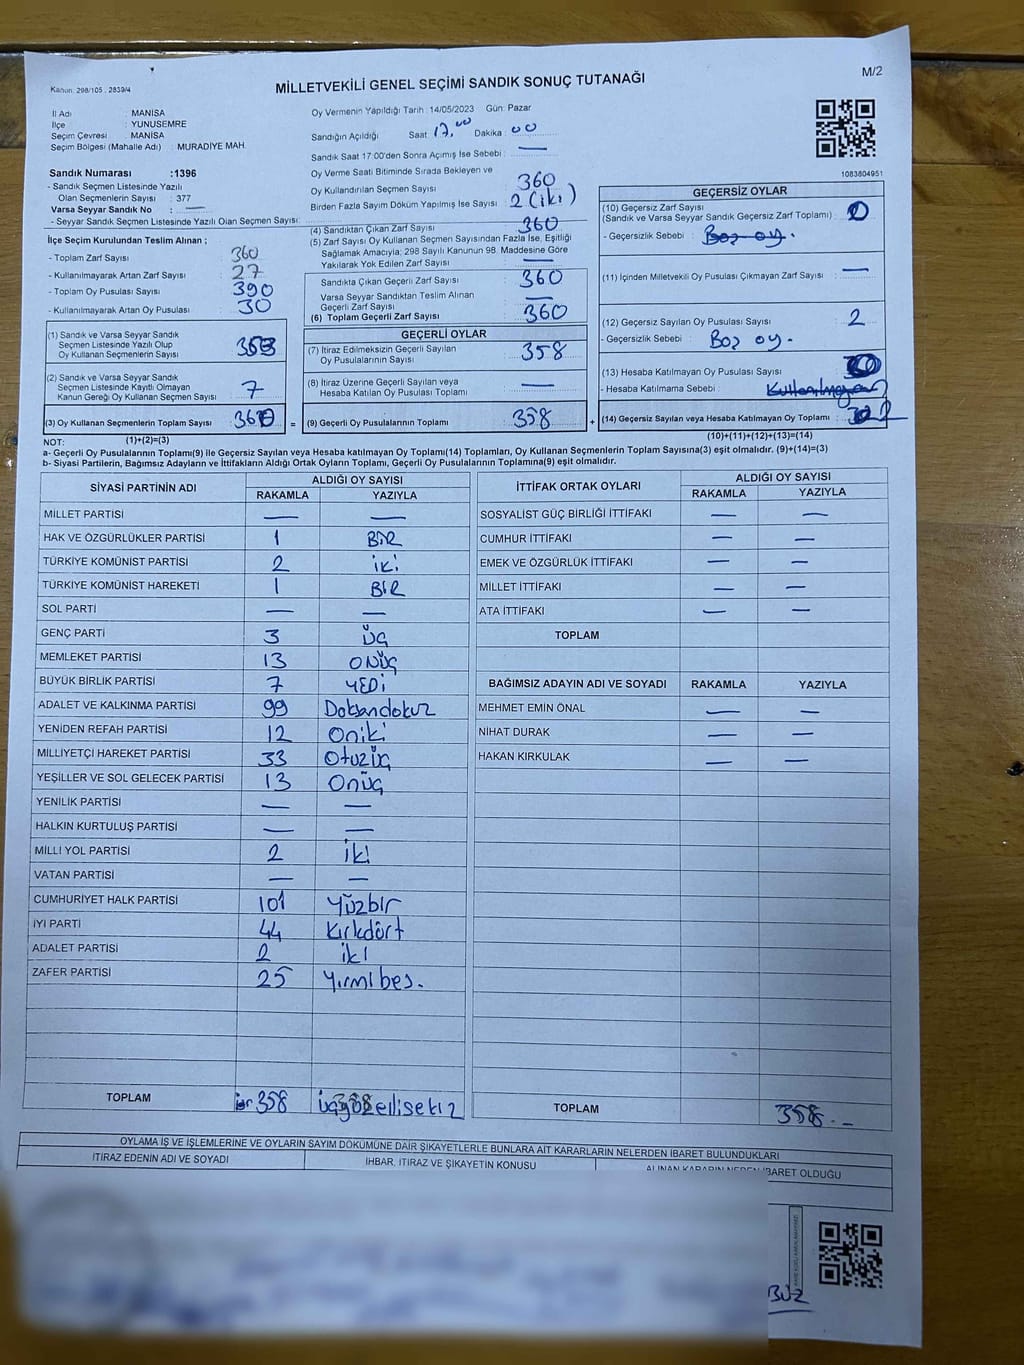 Kanun: 298/105, 2839/4
MİLLETVEKİLİ GENEL SEÇİMİ SANDIK SONUÇ TUTANAĞI
M/2
İl Adı : MANİSA
İlçe : YUNUSEMRE
Seçim Çevresi : MANİSA
Seçim Bölgesi (Mahalle Adı) : MURADİYE MAH.
Sandık Numarası :1396
- Sandık Seçmen Listesinde Yazılı
Olan Seçmenlerin Sayısı : 377
Varsa Seyyar Sandık No : —
- Seyyar Sandık Seçmen Listesinde Yazılı Olan Seçmen Sayısı:
Oy Vermenin Yapıldığı Tarih : 14/05/2023 Gün: Pazar
Sandığın Açıldığı Saat 17,00 Dakika 00
Sandık Saat 17:00'den Sonra Açımış İse Sebebi : —
Oy Verme Saati Bitiminde Sırada Bekleyen ve
Oy Kullandırılan Seçmen Sayısı : 360
Birden Fazla Sayım Döküm Yapılmış İse Sayısı : 2 (iki)
1083804951
İlçe Seçim Kurulundan Teslim Alınan ;
- Toplam Zarf Sayısı : 360
- Kullanılmayarak Artan Zarf Sayısı : 27
- Toplam Oy Pusulası Sayısı : 390
- Kullanılmayarak Artan Oy Pusulası : 30
(1) Sandık ve Varsa Seyyar Sandık
Seçmen Listesinde Yazılı Olup
Oy Kullanan Seçmenlerin Sayısı : 353
(2) Sandık ve Varsa Seyyar Sandık
Seçmen Listesinde Kayıtlı Olmayan
Kanun Gereği Oy Kullanan Seçmen Sayısı : 7
(3) Oy Kullanan Seçmenlerin Toplam Sayısı : 360 =
(4) Sandıktan Çıkan Zarf Sayısı : 360
(5) Zarf Sayısı Oy Kullanan Seçmen Sayısından Fazla İse, Eşitliği
Sağlamak Amacıyla; 298 Sayılı Kanunun 98. Maddesine Göre
Yakılarak Yok Edilen Zarf Sayısı : —
Sandıkta Çıkan Geçerli Zarf Sayısı : 360
Varsa Seyyar Sandıktan Teslim Alınan
Geçerli Zarf Sayısı : —
(6) Toplam Geçerli Zarf Sayısı : 360
GEÇERLİ OYLAR
(7) İtiraz Edilmeksizin Geçerli Sayılan
Oy Pusulalarının Sayısı : 358
(8) İtiraz Üzerine Geçerli Sayılan veya
Hesaba Katılan Oy Pusulası Toplamı : —
(9) Geçerli Oy Pusulalarının Toplamı : 358 +
GEÇERSİZ OYLAR
(10) Geçersiz Zarf Sayısı
(Sandık ve Varsa Seyyar Sandık Geçersiz Zarf Toplamı) : 0
- Geçersizlik Sebebi : Boş oy.
(11) İçinden Milletvekili Oy Pusulası Çıkmayan Zarf Sayısı : —
(12) Geçersiz Sayılan Oy Pusulası Sayısı : 2
- Geçersizlik Sebebi : Boş oy.
(13) Hesaba Katılmayan Oy Pusulası Sayısı :
- Hesaba Katılmama Sebebi : Kullanılmayan
(14) Geçersiz Sayılan veya Hesaba Katılmayan Oy Toplamı : 2
NOT: (1)+(2)=(3) (10)+(11)+(12)+(13)=(14)
a- Geçerli Oy Pusulalarının Toplamı(9) ile Geçersiz Sayılan veya Hesaba katılmayan Oy Toplamı(14) Toplamları, Oy Kullanan Seçmenlerin Toplam Sayısına(3) eşit olmalıdır. (9)+(14)=(3)
b- Siyasi Partilerin, Bağımsız Adayların ve İttifakların Aldığı Ortak Oyların Toplamı, Geçerli Oy Pusulalarının Toplamına(9) eşit olmalıdır.
SİYASİ PARTİNİN ADI ALDIĞI OY SAYISI
RAKAMLA YAZIYLA
MİLLET PARTİSİ — —
HAK VE ÖZGÜRLÜKLER PARTİSİ 1 BİR
TÜRKİYE KOMÜNİST PARTİSİ 2 iki
TÜRKİYE KOMÜNİST HAREKETİ 1 BİR
SOL PARTİ — —
GENÇ PARTİ 3 üç
MEMLEKET PARTİSİ 13 ONÜÇ
BÜYÜK BİRLİK PARTİSİ 7 YEDİ
ADALET VE KALKINMA PARTİSİ 99 Doksandokuz
YENİDEN REFAH PARTİSİ 12 Oniki
MİLLİYETÇİ HAREKET PARTİSİ 33 Otuzüç
YEŞİLLER VE SOL GELECEK PARTİSİ 13 Onüç
YENİLİK PARTİSİ — —
HALKIN KURTULUŞ PARTİSİ — —
MİLLİ YOL PARTİSİ 2 iki
VATAN PARTİSİ — —
CUMHURİYET HALK PARTİSİ 101 Yüzbir
İYİ PARTİ 44 Kırkdört
ADALET PARTİSİ 2 iki
ZAFER PARTİSİ 25 Yirmibeş.
TOPLAM 358 üçyüzellisekiz
İTTİFAK ORTAK OYLARI ALDIĞI OY SAYISI
RAKAMLA YAZIYLA
SOSYALİST GÜÇ BİRLİĞİ İTTİFAKI — —
CUMHUR İTTİFAKI — —
EMEK VE ÖZGÜRLÜK İTTİFAKI — —
MİLLET İTTİFAKI — —
ATA İTTİFAKI — —
TOPLAM
BAĞIMSIZ ADAYIN ADI VE SOYADI RAKAMLA YAZIYLA
MEHMET EMİN ÖNAL — —
NİHAT DURAK — —
HAKAN KIRKULAK — —
TOPLAM 358.—
OYLAMA İŞ VE İŞLEMLERİNE VE OYLARIN SAYIM DÖKÜMÜNE DAİR ŞİKAYETLERLE BUNLARA AİT KARARLARIN NELERDEN İBARET BULUNDUKLARI
İTİRAZ EDENİN ADI VE SOYADI İHBAR, İTİRAZ VE ŞİKAYETİN KONUSU ALINAN KARARIN NEDEN İBARET OLDUĞU